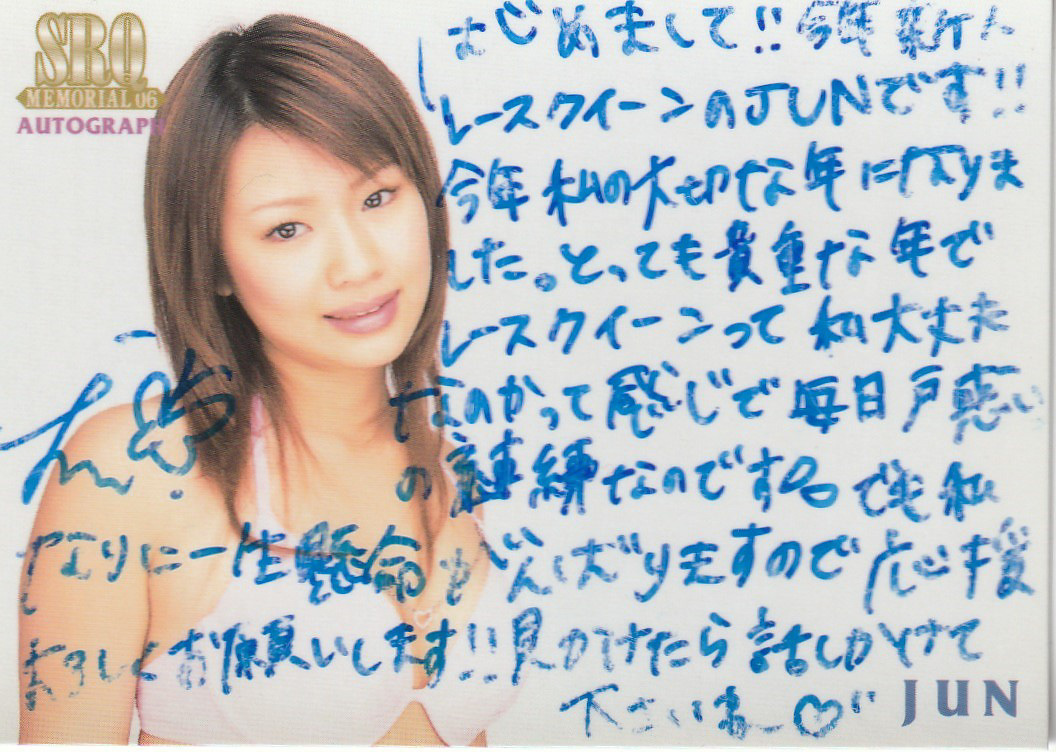 SRQ
MEMORIAL 06
AUTOGRAPH
はじめまして!! 今年新人
レースクイーンのJUNです!!
今年私の大切な年になりま
した。とっても貴重な年で
レースクイーンって私大丈夫
なのかって感じで毎日戸惑い
の連続なのです でも私
なりに一生懸命がんばりますので応援
よろしくお願いします!!見かけたら話しかけて
下さいね〜♡
JUN